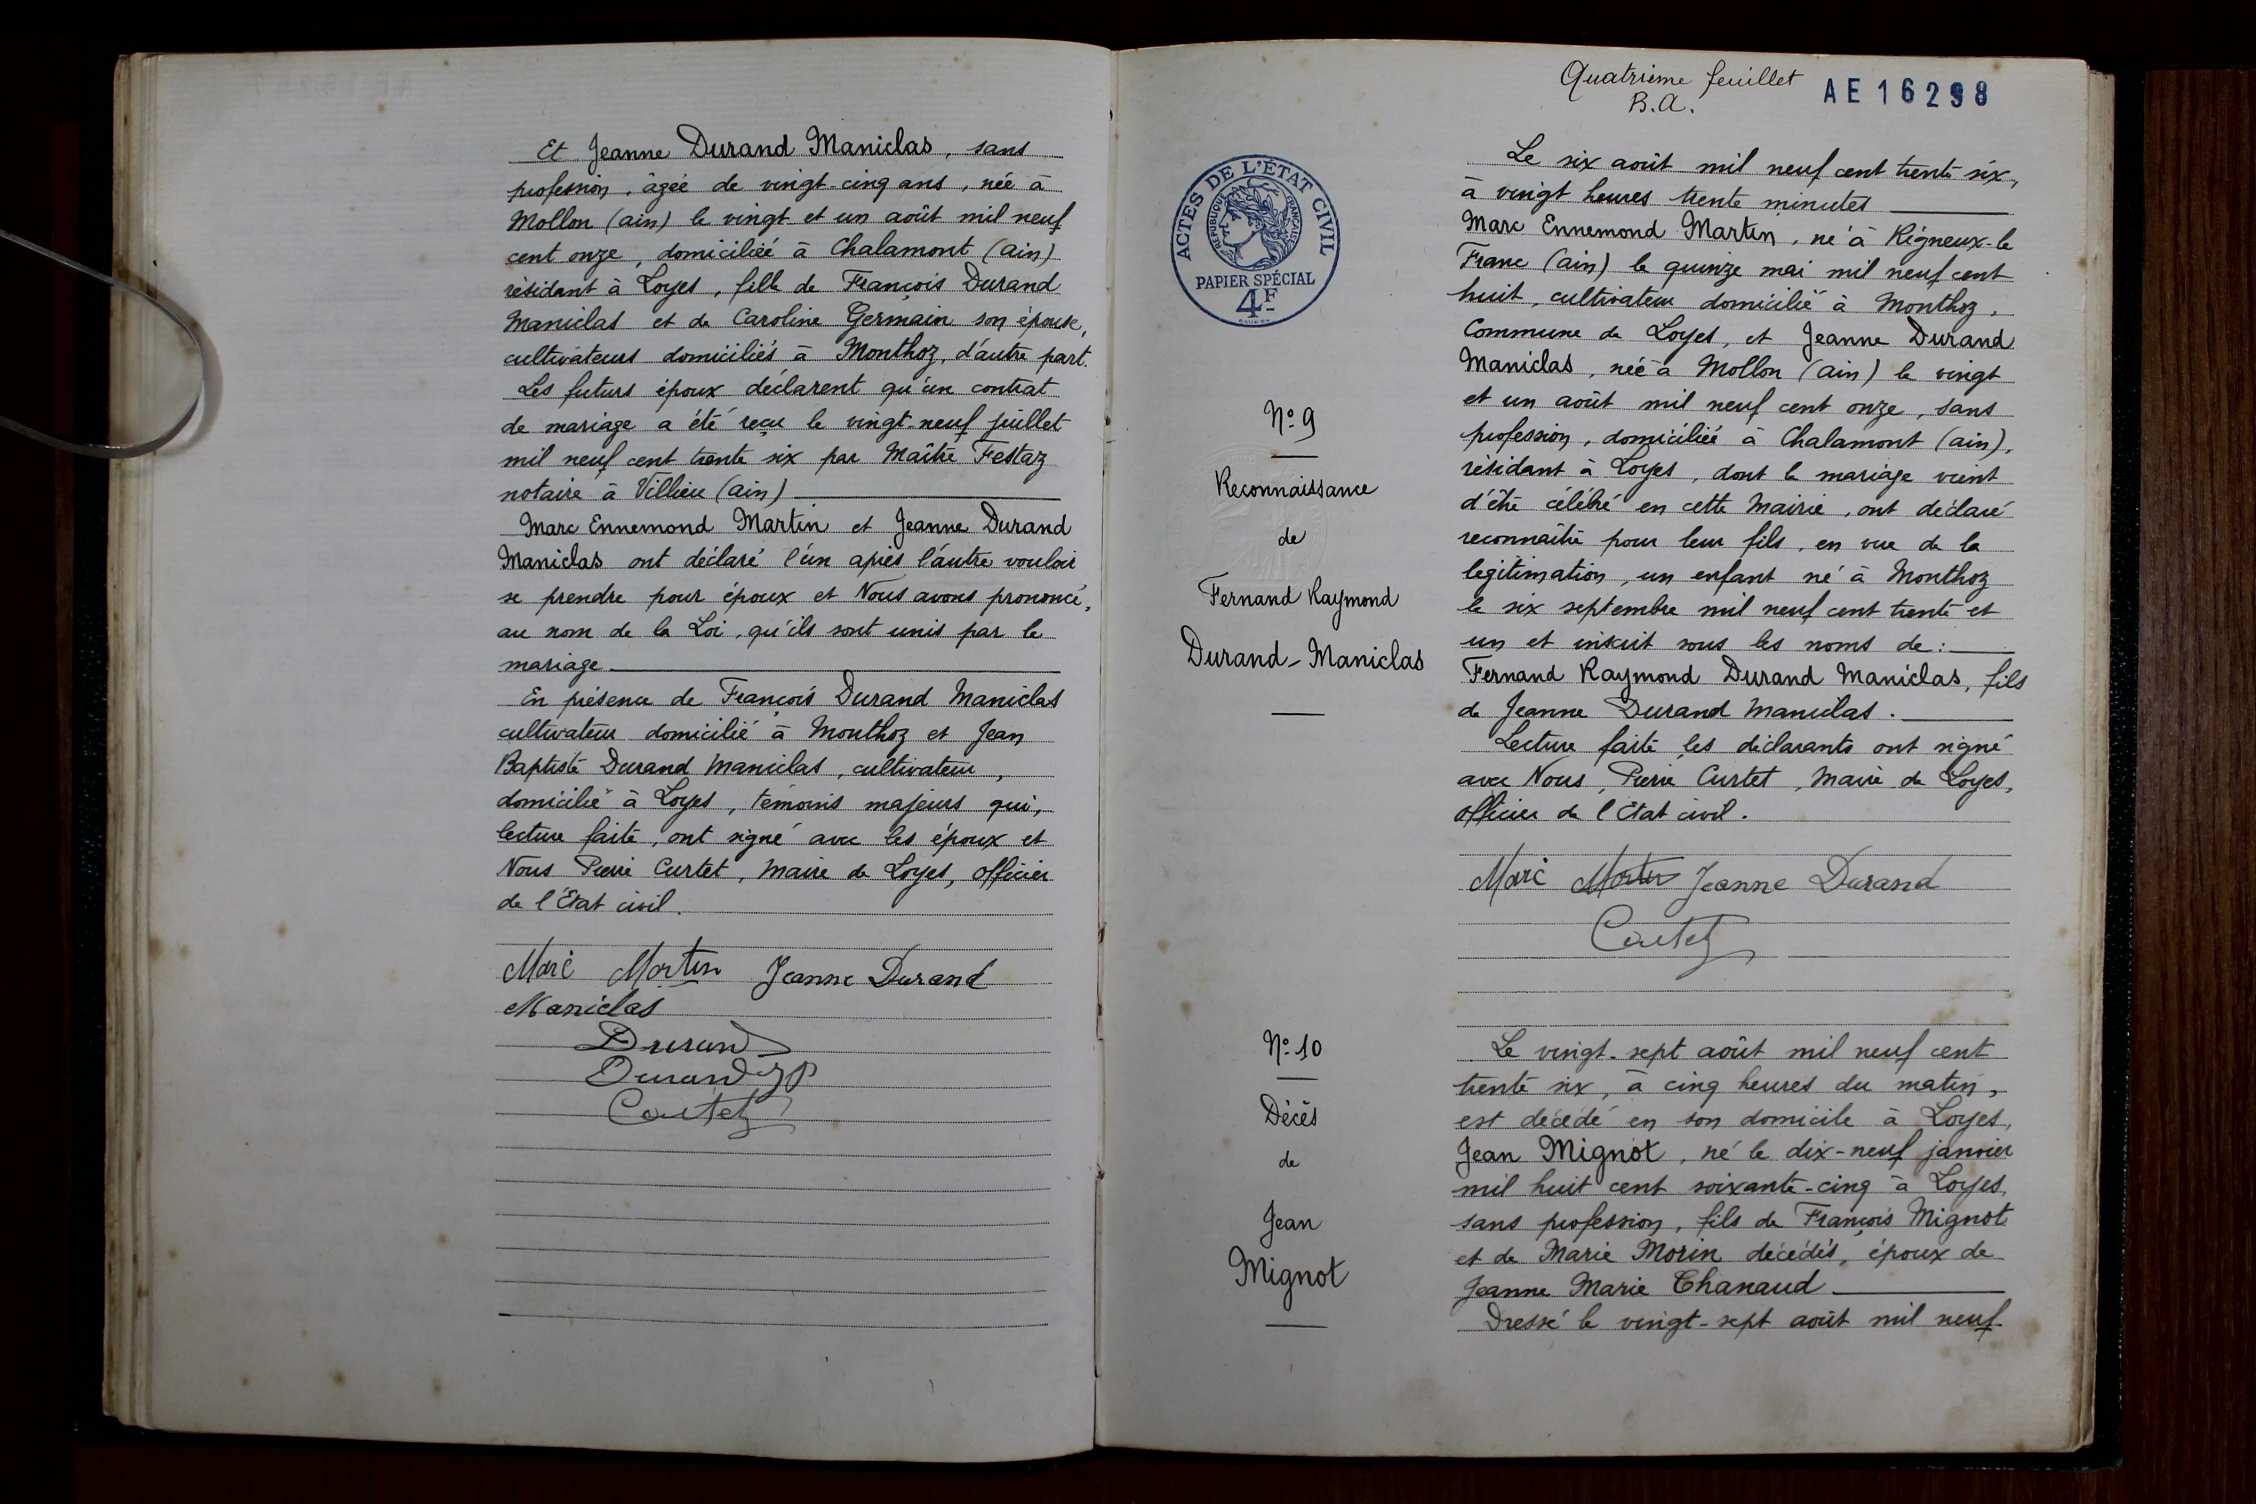 Et Jeanne Durand Maniclas, sans
profession, âgée de vingt-cinq ans, née à
Mollon (ain) le vingt et un août mil neuf
cent onze, domiciliée à Chalamont (ain)
résidant à Loyes, fille de François Durand
Maniclas et de Caroline Germain son épouse,
cultivateurs domiciliés à Monthoz, d'autre part.
Les futurs époux déclarent qu'un contrat
de mariage a été reçu le vingt-neuf juillet
mil neuf cent trente six par Maître Festaz
notaire à Villieu (ain)
Marc Ennemond Martin et Jeanne Durand
Maniclas ont déclaré l'un après l'autre vouloir
se prendre pour époux et Nous avons prononcé,
au nom de la Loi, qu'ils sont unis par le
mariage
En présence de François Durand Maniclas
cultivateur domicilié à Monthoz et Jean
Baptiste Durand Maniclas, cultivateur,
domicilié à Loyes, témoins majeurs qui,
lecture faite, ont signé avec les époux et
Nous Pierre Curtet, Maire de Loyes, officier
de l'Etat civil.
Marc Martin Jeanne Durand
Maniclas
Durand
Durand JB
Curtet
Quatrième feuillet
B.A.
AE 16298
ACTES DE L'ÉTAT CIVIL
RÉPUBLIQUE FRANÇAISE
PAPIER SPÉCIAL
4F
N° 9
Reconnaissance
de
Fernand Raymond
Durand-Maniclas
Le six août mil neuf cent trente six,
à vingt heures trente minutes
Marc Ennemond Martin, né à Rigneux-le
Franc (ain) le quinze mai mil neuf cent
huit, cultivateur domicilié à Monthoz,
Commune de Loyes, et Jeanne Durand
Maniclas, née à Mollon (ain) le vingt
et un août mil neuf cent onze, sans
profession, domiciliée à Chalamont (ain),
résidant à Loyes, dont le mariage vient
d'être célébré en cette Mairie, ont déclaré
reconnaître pour leur fils, en vue de la
légitimation, un enfant né à Monthoz
le six septembre mil neuf cent trente et
un et inscrit sous les noms de :
Fernand Raymond Durand Maniclas, fils
de Jeanne Durand Maniclas.
Lecture faite les déclarants ont signé
avec Nous, Pierre Curtet, Maire de Loyes,
officier de l'Etat civil.
Marc Martin Jeanne Durand
Curtet
N° 10
Décès
de
Jean
Mignot
Le vingt-sept août mil neuf cent
trente six, à cinq heures du matin,
est décédé en son domicile à Loyes,
Jean Mignot, né le dix-neuf janvier
mil huit cent soixante-cinq à Loyes,
sans profession, fils de François Mignot
et de Marie Morin décédés, époux de
Jeanne Marie Chanaud
Dressé le vingt-sept août mil neuf